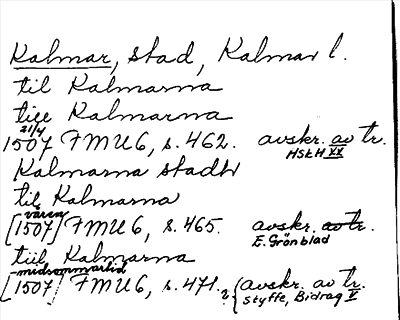 Kalmar, stad, Kalmar l.
til Kalmarna
tiie Kalmarna
21/4
1507 FMU6, s. 462. avskr. av tr.
HSkH XX
Kalmarna stadh
til Kalmarna
våren
[1507] FMU6, s. 465. avskr. av tr.
E. Grönblad
tiil Kalmarna
-midsommartid
[1507] FMU6, s. 471. ? (avskr. av tr.
Styffe, Bidrag V